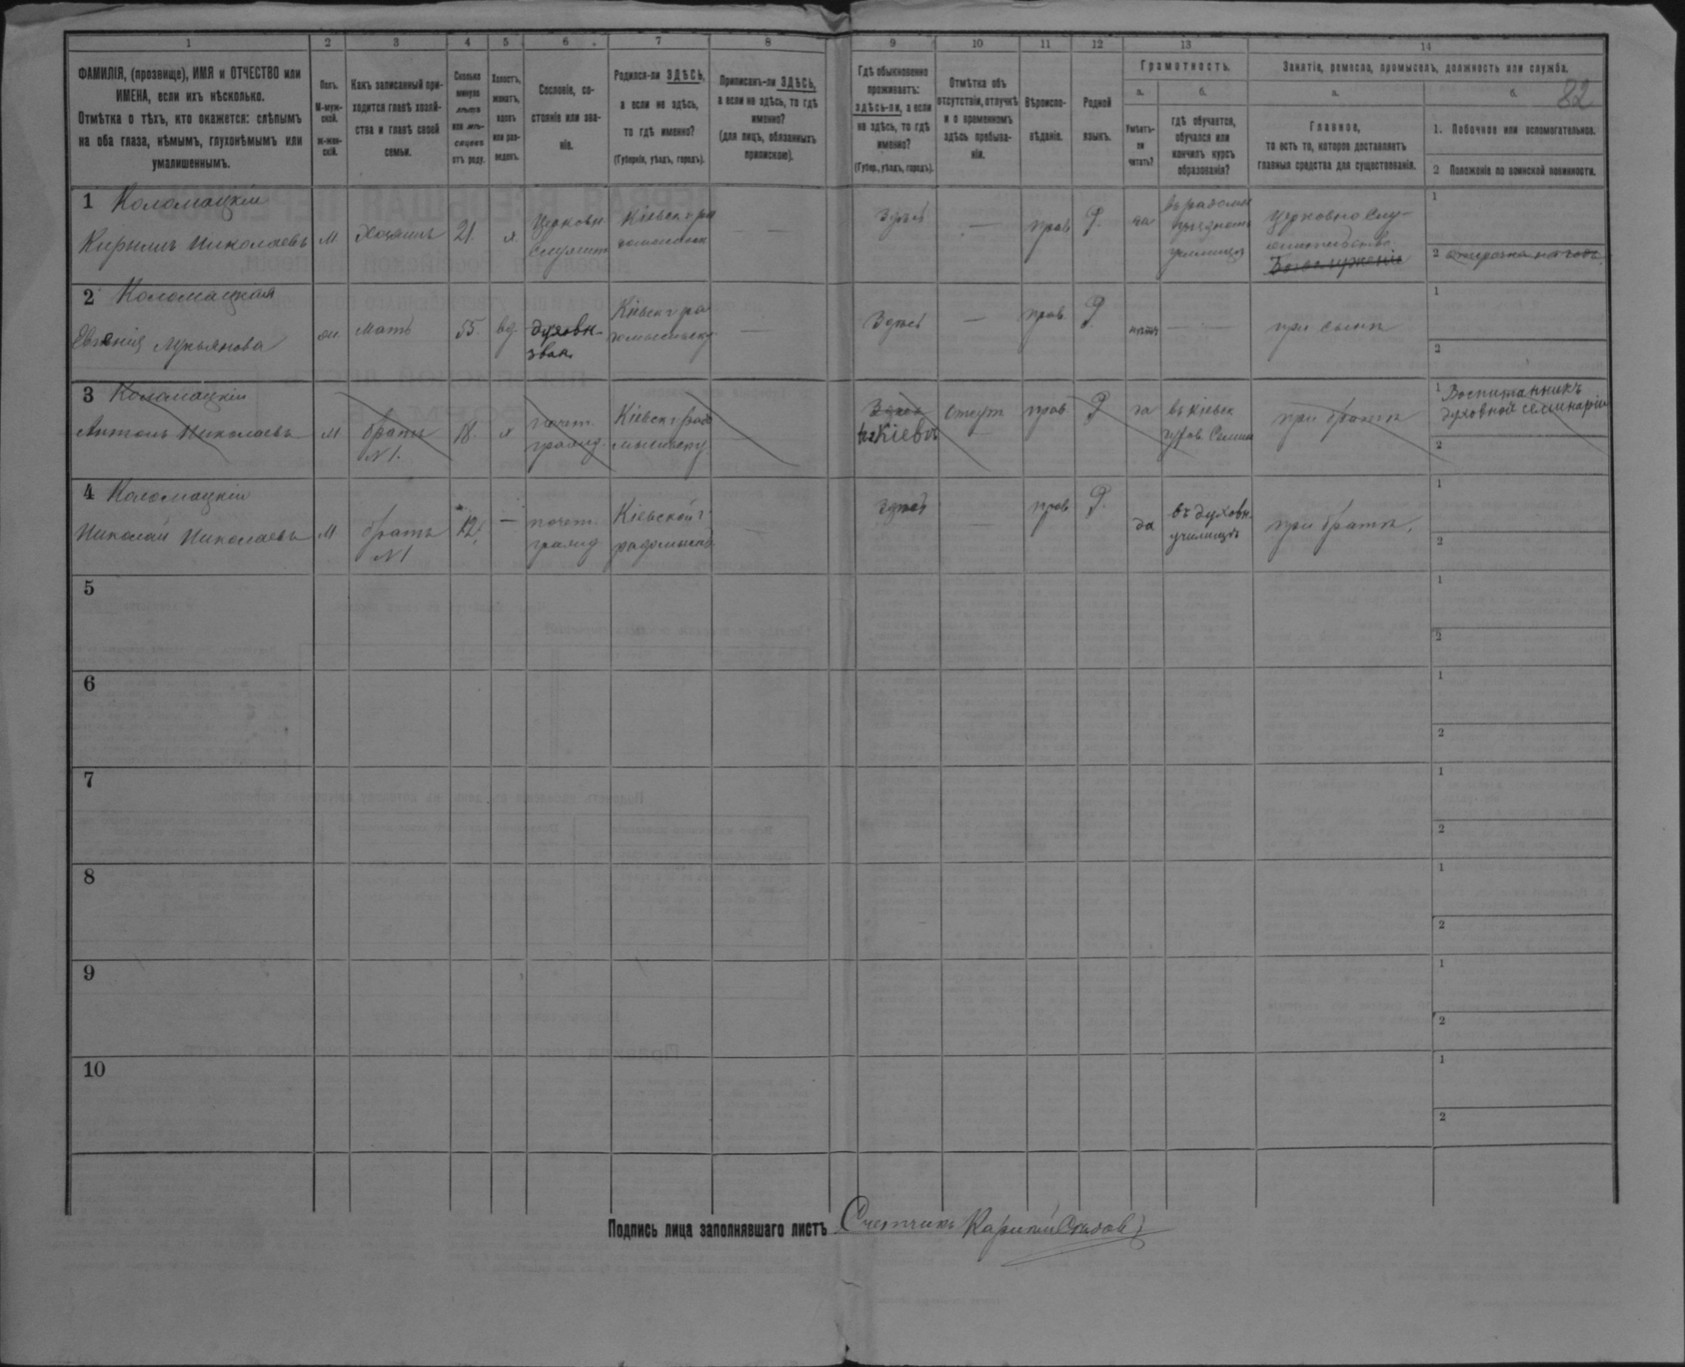 1 2 3 4 5 6 7 8 9 10 11 12 13 14
ФАМИЛІЯ, (прозвище), ИМЯ и ОТЧЕСТВО или
ИМЕНА, если ихъ нѣсколько.
Отмѣтка о тѣхъ, кто окажется: слѣпымъ
на оба глаза, нѣмымъ, глухонѣмымъ или
умалишеннымъ.
Полъ.
М-муж-
ской.
Ж-жен-
скій.
Какъ записанный при-
ходится главѣ хозяй-
ства и главѣ своей
семьи.
Сколько
минуло
лѣтъ
или мѣ-
сяцевъ
отъ роду.
Холостъ,
женатъ,
вдовъ
или раз-
веденъ.
Сословіе, со-
стояніе или зва-
ніе.
Родился-ли ЗДѢСЬ,
а если не здѣсь,
то гдѣ именно?
(Губернія, уѣздъ, городъ).
Приписанъ-ли ЗДѢСЬ,
а если не здѣсь, то гдѣ
именно?
(для лицъ, обязанныхъ
припискою).
Гдѣ обыкновенно
проживаетъ:
здѣсь-ли, а если
не здѣсь, то гдѣ
именно?
(Губер., уѣздъ, городъ).
Отмѣтка объ
отсутствіи, отлучкѣ
и о временномъ
здѣсь пребыва-
ніи.
Вѣроиспо-
вѣданіе.
Родной
языкъ.
Грамотность.
а.
Умѣетъ-
ли
читать?
б.
гдѣ обучается,
обучался или
кончилъ курсъ
образованія?
Занятіе, ремесло, промыселъ, должность или служба.
а.
Главное,
то есть то, которое доставляетъ
главныя средства для существованія.
б.
82
1. Побочное или вспомогательное.
2 Положеніе по воинской повинности.
1 Коломацкій
Кирыллъ Николаевъ
М
Хозяинъ
21.
х.
Церковн
Служит
Кіевск г ра
—
Здѣсь
—
прав
Р.
да
училищѣ
Церковно Слу-
1
2 отсрочка на годъ.
2 Коломацкая
Евгенія Лукьянова
мать
55.
вд
духовн.
зван.
Кіевск г ра
—
Здѣсь
—
прав
Р
нѣтъ
— —
при сынѣ
1
2
3 Коломацкій
Антонъ Николаевъ
М
братъ
N 1.
18.
х
почет.
гражд.
Кіевск г рад
Здѣсь
въ Кіевѣ
отсут
прав
Р
да
въ Кіевск
дух Семин
при братѣ
1 Воспитанникъ
духовной семинаріи
2
4 Коломацкій
Николай Николаевъ
М
братъ
N 1
12.
—
почет.
гражд
Кіевской г
радомысл
—
Здѣсь
—
прав
Р.
да
въ духовн.
училищѣ
при братѣ.
1
2
5
1
2
6
1
2
7
1
2
8
1
2
9
1
2
10
1
2
Подпись лица заполнявшаго листъ Счетчикъ